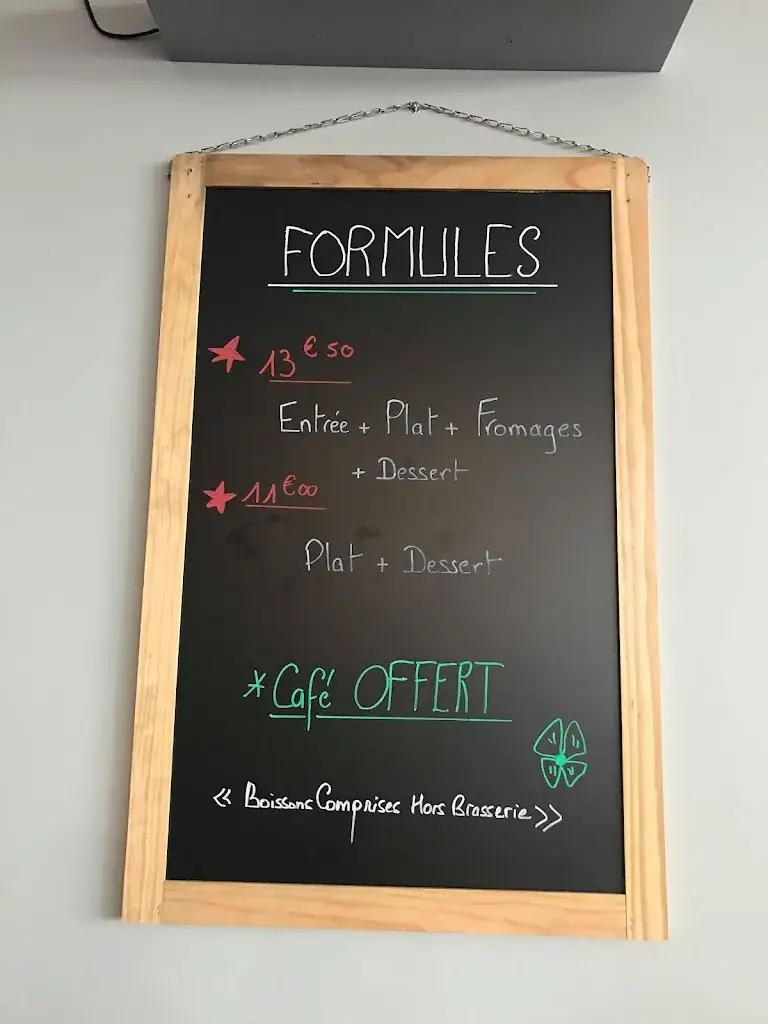 FORMULES
13€50
Entrée + Plat + Fromages
+ Dessert
11€00
Plat + Dessert
*Café OFFERT
« Boissons Comprises Hors Brasserie »